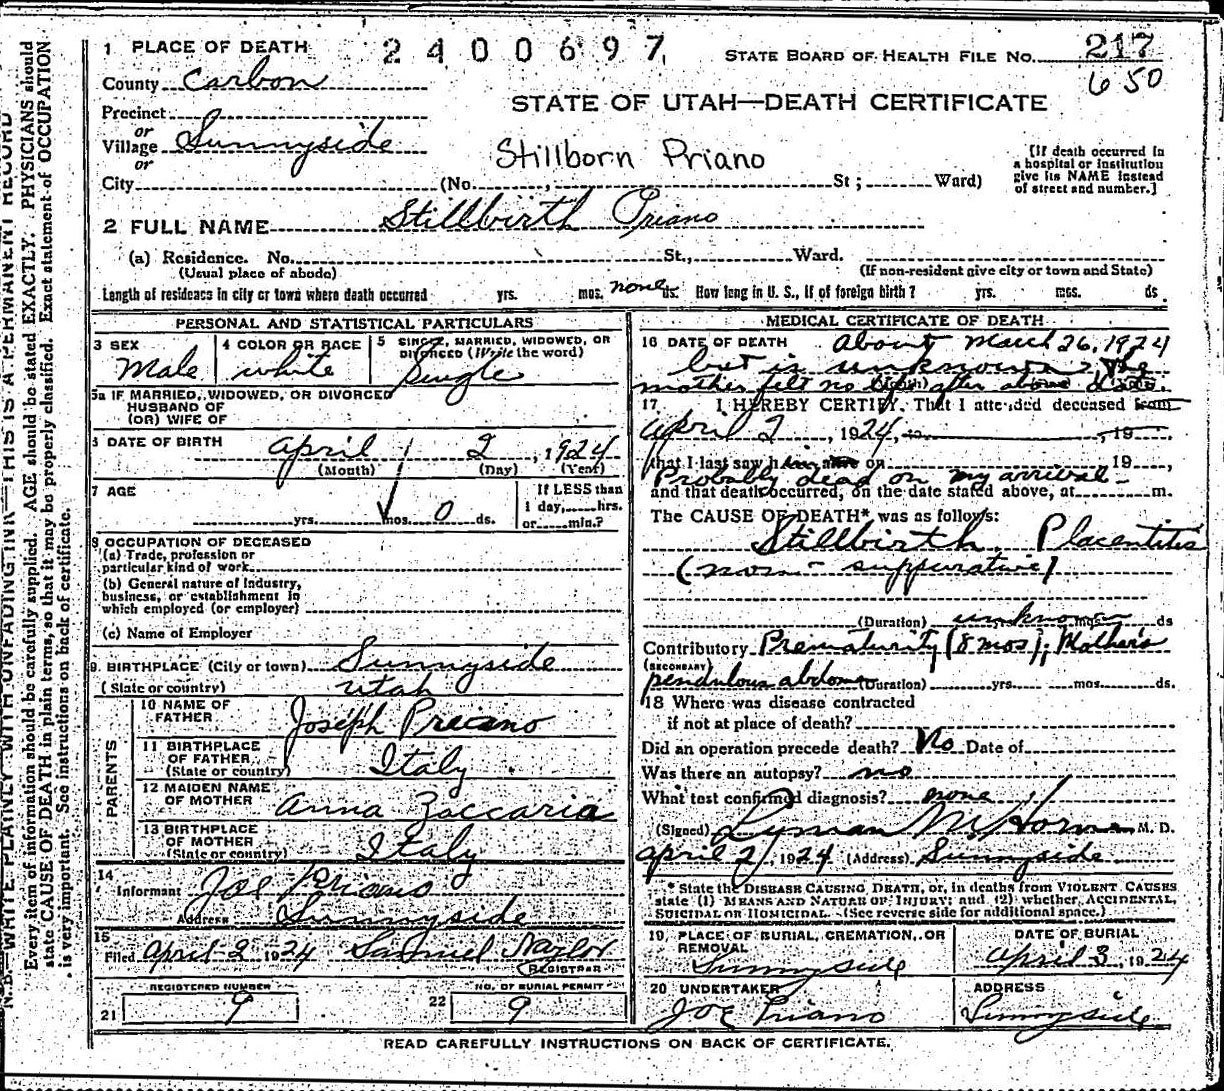 1 PLACE OF DEATH 2400697 STATE BOARD OF HEALTH FILE NO. 217
County Carbon 650
STATE OF UTAH—DEATH CERTIFICATE
Precinct
or
Village Sunnyside
or
Stillborn Priano
[If death occurred in a hospital or institution give its NAME instead of street and number.]
City (No. St; Ward)
2 FULL NAME Stillbirth Priano
(a) Residence. No. St., Ward.
(Usual place of abode) (If non-resident give city or town and State)
Length of residence in city or town where death occurred yrs. mos. none ds. How long in U. S., if of foreign birth? yrs. mos. ds
PERSONAL AND STATISTICAL PARTICULARS
3 SEX 4 COLOR OR RACE 5 SINGLE, MARRIED, WIDOWED, OR DIVORCED (Write the word)
Male white Single
5a IF MARRIED, WIDOWED, OR DIVORCED
HUSBAND OF
(OR) WIFE OF
6 DATE OF BIRTH April 2, 1924
(Month) (Day) (Year)
7 AGE If LESS than
1 day, hrs.
yrs. mos. 0 ds. or min.?
8 OCCUPATION OF DECEASED
(a) Trade, profession or
particular kind of work
(b) General nature of industry,
business, or establishment in
which employed (or employer)
(c) Name of Employer
9. BIRTHPLACE (City or town) Sunnyside
(State or country) Utah
PARENTS
10 NAME OF
FATHER Joseph Preiano
11 BIRTHPLACE
OF FATHER
(State or country) Italy
12 MAIDEN NAME
OF MOTHER Anna Zaccaria
13 BIRTHPLACE
OF MOTHER
(State or country) Italy
14
Informant Joe Priano
Address Sunnyside
15
Filed April 2 1924 Samuel Naylor
REGISTRAR
REGISTERED NUMBER NO. OF BURIAL PERMIT
21 9 22 9
MEDICAL CERTIFICATE OF DEATH
16 DATE OF DEATH about March 26, 1924
but is unknown, the
mother felt no life after above date.
17 I HEREBY CERTIFY. That I attended deceased from
April 2, 1924, to , 19
that I last saw him alive on 19
Probably dead on my arrival
and that death occurred, on the date stated above, at m.
The CAUSE OF DEATH* was as follows:
Stillbirth. Placentitis
(non-suppurative)
(Duration) unknown mos ds
Contributory Prematurity (8 mos); Mother's
(SECONDARY)
pendulous abdomen (Duration) yrs. mos. ds.
18 Where was disease contracted
if not at place of death?
Did an operation precede death? No Date of
Was there an autopsy? no
What test confirmed diagnosis? none
(Signed) Lyman M. Horne M. D.
April 2, 1924 (Address) Sunnyside
* State the DISEASE CAUSING DEATH, or, in deaths from VIOLENT CAUSES
state (1) MEANS AND NATURE OF INJURY; and (2) whether ACCIDENTAL,
SUICIDAL OR HOMICIDAL. (See reverse side for additional space.)
19 PLACE OF BURIAL, CREMATION, OR REMOVAL DATE OF BURIAL
Sunnyside April 3, 1924
20 UNDERTAKER ADDRESS
Joe Priano Sunnyside
READ CAREFULLY INSTRUCTIONS ON BACK OF CERTIFICATE.
N.B.—WRITE PLAINLY WITH UNFADING INK—THIS IS A PERMANENT RECORD
Every item of information should be carefully supplied. AGE should be stated EXACTLY. PHYSICIANS should
state CAUSE OF DEATH in plain terms, so that it may be properly classified. Exact statement of OCCUPATION
is very important. See instructions on back of certificate.